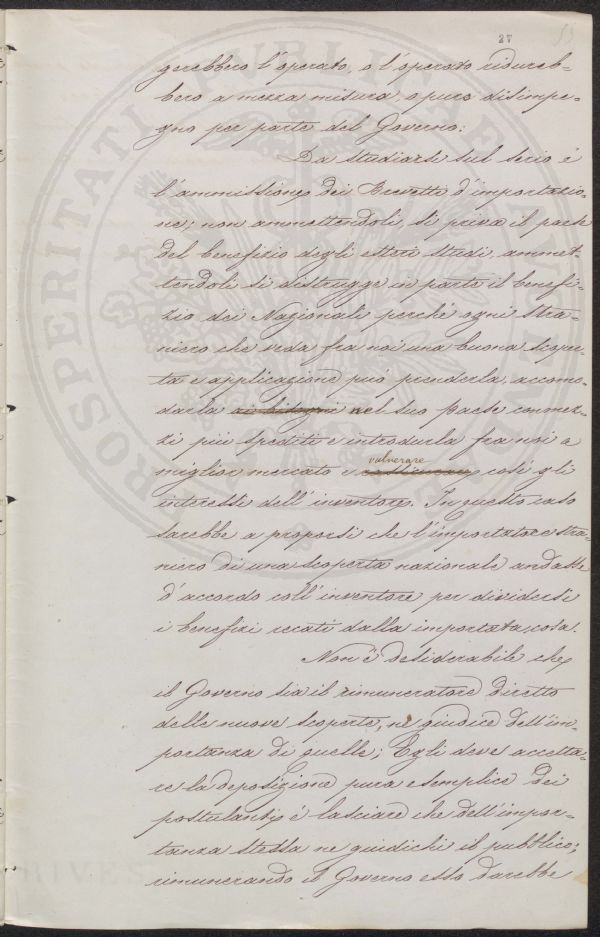 27
gerebbero l'operato, o l'operato ridureb-
bero a mezza misura, o pure disimpe-
gno per parte del Governo:
Da studiarsi sul serio è
l'ammissione dei Brevetti d'importazio-
ne; non ammettendoli, si priva il paese
del benefizio degli esteri studi, ammet-
tendoli si distrugge in parte il benefi-
zio dei Nazionali perché ogni stra-
niero che veda fra noi una buona scoper-
ta e applicazione può prenderla, accomo-
darla ai bisogni nel suo Paese con mez-
zi più spediti e introdurla fra noi a
miglior mercato e vulnerare così gli
interessi dell'inventore. In questo caso
sarebbe a proporsi che l'importatore stra-
niero di una scoperta nazionale andasse
d'accordo coll'inventore per dividersi
i benefizi recati dalla importata cosa.
Non è desiderabile che
il Governo sia il rimuneratore diretto
delle nuove scoperte, né giudice dell'im-
portanza di quelle; Egli deve accetta-
re la deposizione pura e semplice dei
postulanti, é lasciare che dell'impor-
tanza stessa ne giudichi il pubblico;
rimunerando il Governo esso darebbe
PROSPERITATI PUBLICAE AVGENDAE